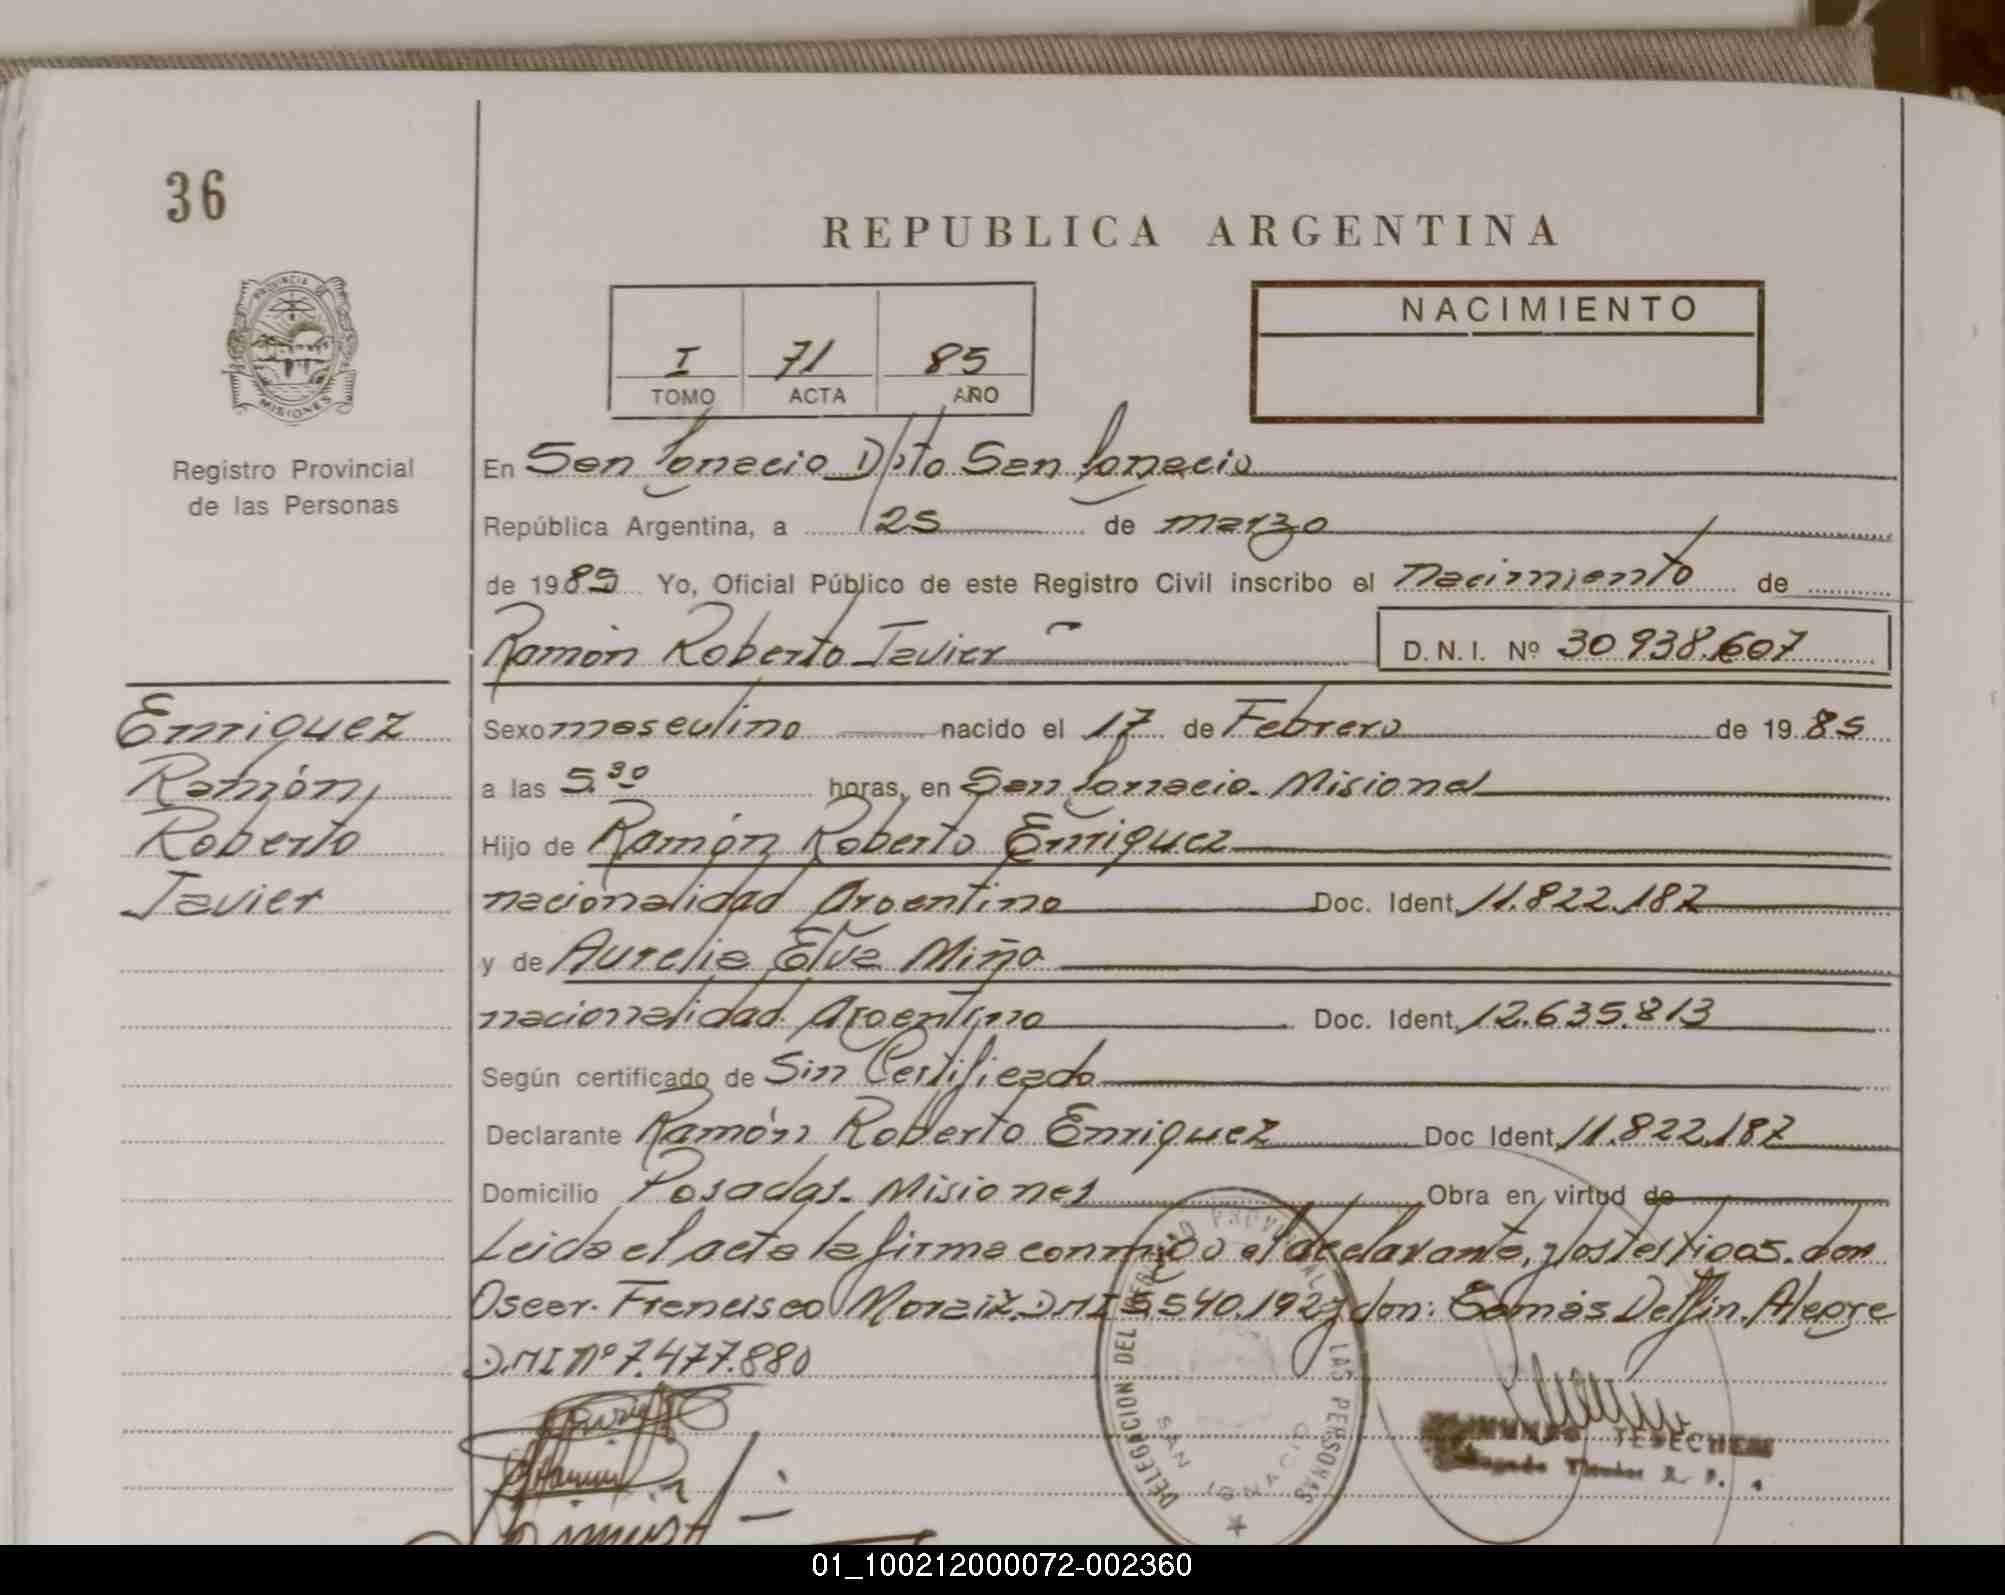 36
REPUBLICA ARGENTINA
PROVINCIA D
MISIONES
NACIMIENTO
I 71 85
TOMO ACTA AÑO
Registro Provincial
de las Personas
En San Ignacio Dpto San Ignacio
República Argentina, a 25 de marzo
de 1985 Yo, Oficial Público de este Registro Civil inscribo el nacimiento de
Ramón Roberto Javier D.N.I. Nº 30 938.607
Enriquez
Ramón,
Roberto
Javier
Sexo masculino nacido el 17 de Febrero de 1985
a las 5.30 horas, en San Ignacio. Misiones
Hijo de Ramón Roberto Enriquez
nacionalidad Argentino Doc. Ident. 11.822.187
y de Aurelia Elva Miño
nacionalidad Argentino Doc. Ident. 12.635.813
Según certificado de Sin Certificado
Declarante Ramón Roberto Enriquez Doc Ident. 11.822.187
Domicilio Posadas. Misiones Obra en virtud de
Leida el acta la firma conmigo el declarante, y los testigos. don
Oscar. Francisco D.M.I 5.540.192 y don: Tomás Delfin. Alegre
D.M.I Nº 7.477.880
DELEGACION DEL REGISTRO PROVINCIAL LAS PERSONAS
SAN IGNACIO
TESECHEN
01_100212000072-002360